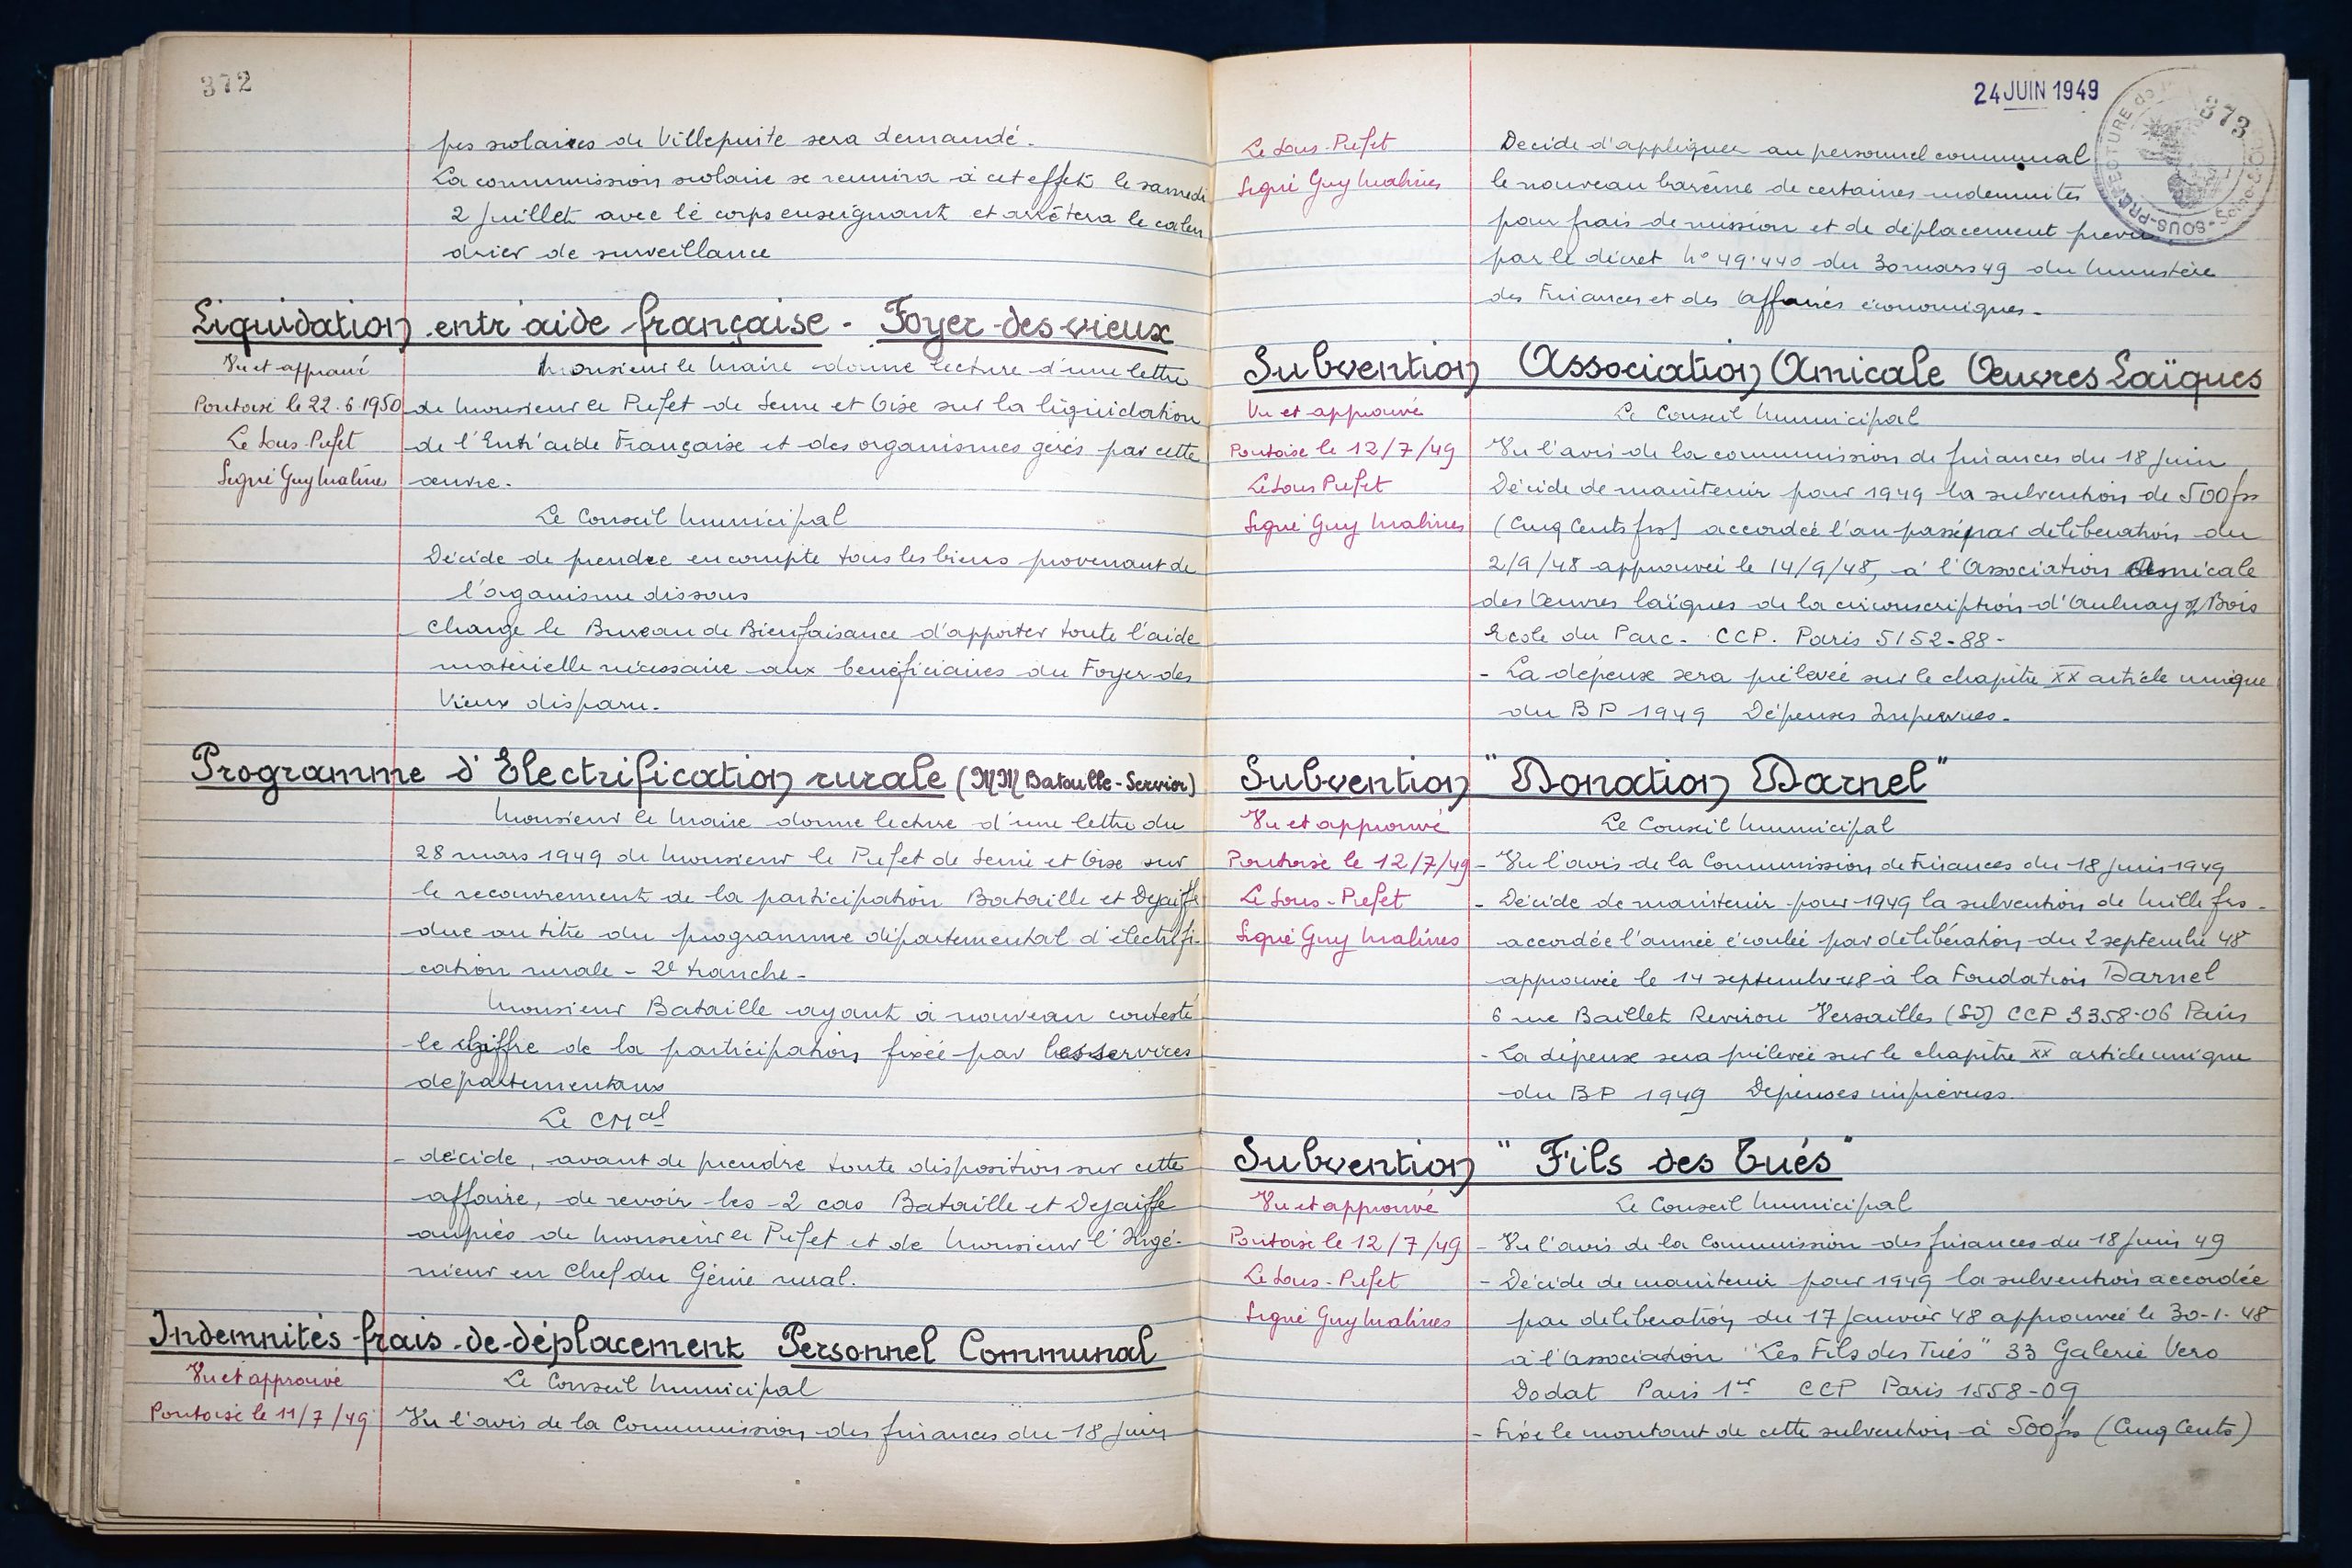 372
pes scolaires de Villepinte sera demandé.
La commission scolaire se reunira à cet effet le samedi
2 Juillet avec le corps enseignant et arrêtera le calen
drier de surveillance
Liquidation entr'aide française - Foyer des vieux
Vu et approuvé
Pontoise le 22.6.1950
Le Sous-Prefet
Signé Guy Malines
Monsieur le Maire donne lecture d'une lettre
de Monsieur le Prefet de Seine et Oise sur la liquidation
de l'Entr'aide Française et des organismes gérés par cette
œuvre.
Le Conseil Municipal
Décide de prendre en compte tous les biens provenant de
l'organisme dissous
Charge le Bureau de Bienfaisance d'apporter toute l'aide
matérielle nécessaire aux bénéficiaires du Foyer des
Vieux disparu.
Programme d'Electrification rurale (MM Bataille - Servior)
Monsieur le Maire donne lecture d'une lettre du
28 mars 1949 de Monsieur le Prefet de Seine et Oise sur
le recouvrement de la participation Bataille et Dejaiffe
due au titre du programme départemental d'électrifi-
cation rurale - 2e tranche -
Monsieur Bataille ayant à nouveau contesté
le chiffre de la participation fixée par les services
départementaux
Le CMal
- décide, avant de prendre toute disposition sur cette
affaire, de revoir les 2 cas Bataille et Dejaiffe
auprès de Monsieur le Préfet et de Monsieur l'Ingé-
nieur en Chef du Génie rural.
Indemnités frais-de-déplacement Personnel Communal
Vu et approuvé
Pontoise le 11/7/49
Le Conseil Municipal
Vu l'avis de la Commission des finances du 18 Juin
24 JUIN 1949
373
SOUS-PRÉFECTURE de
Le Sous-Prefet
Signé Guy Malines
Decide d'appliquer au personnel communal
le nouveau barême de certaines indemnités
pour frais de mission et de déplacement prevu
par le décret No 49.440 du 30 mars 49 du Ministère
des Finances et des Affaires économiques.
Subvention Association Amicale Œuvres Laïques
Vu et approuvé
Pontoise le 12/7/49
Le Sous Prefet
Signé Guy Malines
Le Conseil Municipal
Vu l'avis de la commission de finances du 18 Juin
Décide de maintenir pour 1949 la subvention de 500 frs
(Cinq Cents frs) accordée l'an passé par délibération du
2/9/48 approuvée le 14/9/48, à l'Association Amicale
des Œuvres laïques de la circonscription d'Aulnay s/ Bois
Ecole du Parc - CCP. Paris 5152-88 -
- La dépense sera prélevée sur le chapitre XX article unique
du BP 1949 Dépenses Imprevues.
Subvention "Donation Darnel"
Vu et approuvé
Pontoise le 12/7/49
Le Sous-Prefet
Signé Guy Malines
Le Conseil Municipal
- Vu l'avis de la Commission de Finances du 18 Juin 1949
- Décide de maintenir pour 1949 la subvention de Mille frs -
accordée l'année écoulée par délibération du 2 septembre 48
approuvée le 14 septembre 48 à la Fondation Darnel
6 rue Baillet Reviron Versailles (SO) CCP 3358-06 Paris
- La dépense sera prélevée sur le chapitre XX article unique
du BP 1949 Dépenses imprévues.
Subvention "Fils des Tués"
Vu et approuvé
Pontoise le 12/7/49
Le Sous-Prefet
Signé Guy Malines
Le Conseil Municipal
- Vu l'avis de la Commission des finances du 18 Juin 49
- Décide de maintenir pour 1949 la subvention accordée
par délibération du 17 Janvier 48 approuvée le 30-1-48
à l'Association "Les Fils des Tués" 33 Galerie Vero
Dodat Paris 1er CCP Paris 1558-09
- Fixe le montant de cette subvention à 500 frs (Cinq Cents)